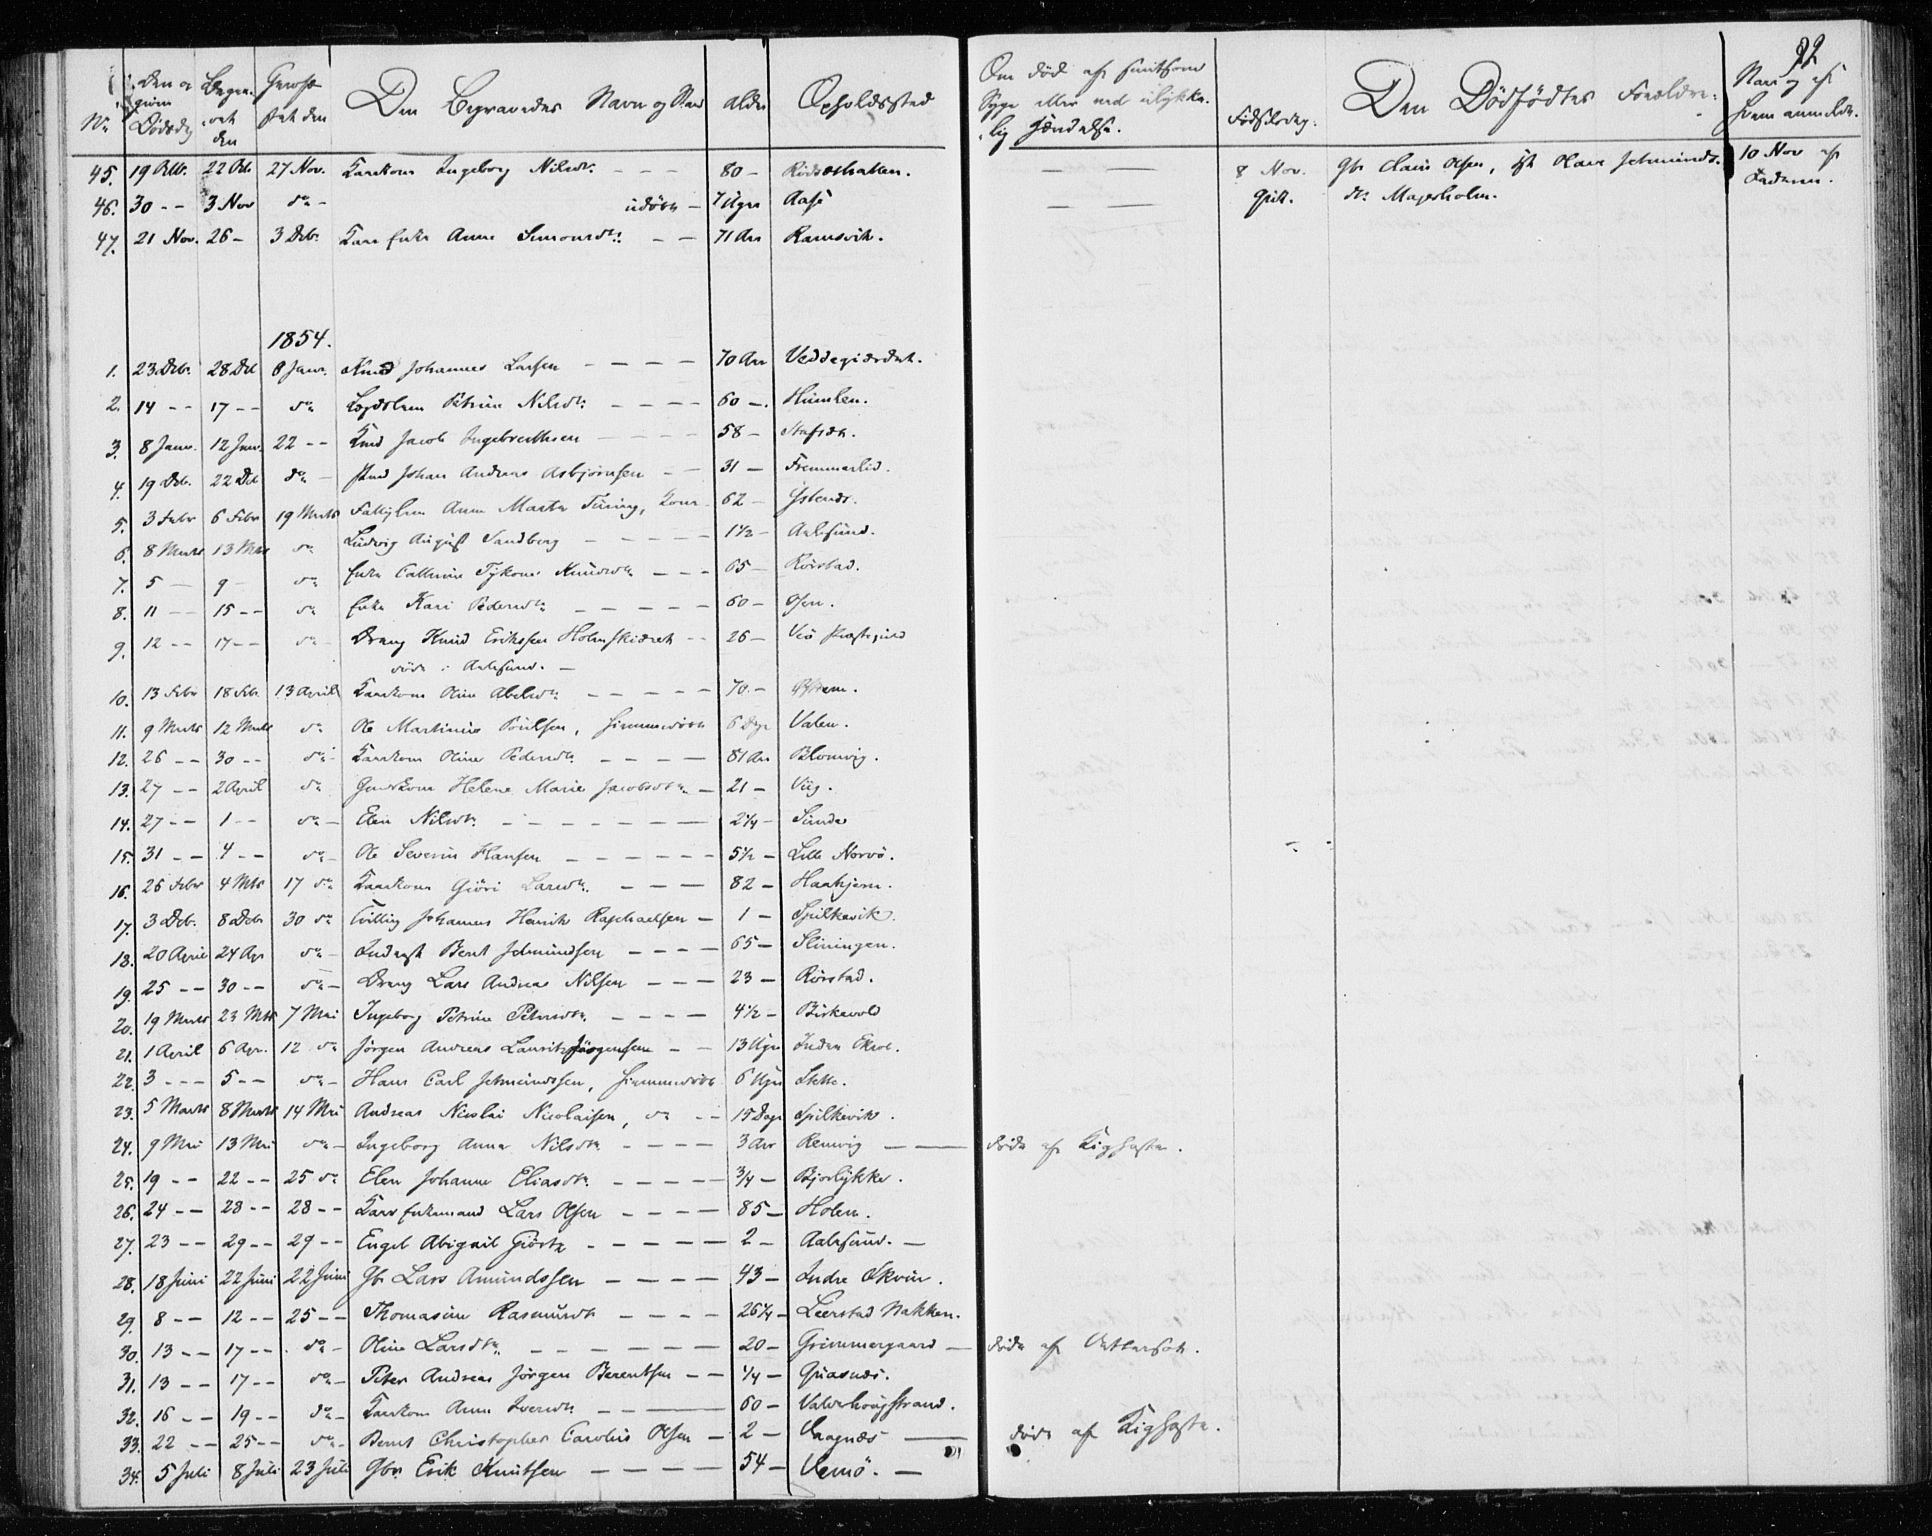 22
No Den og Dødsdag Begravet den Den Begravedes Navn og Stand Alder Opholdsstad Om død af smitsom Syge eller ved ulykkelig Hændelse. Fødselsdag. Den Dødfødtes Forældre. Naar og af hvem anmeldt.
45. 19 Octb. 22 Octb. 27 Nov. Kaarkone Ingeborg Nilsdtr. - - - 80 - — — 8 Nov. Gbr. Claus Olsen, 10 Nov af
46. 30 - - 3 Nov do - udøbt - 7 Uger Aase — — dtr. Magerholm. Faderen.
47. 21 Nov. 26 - 3 Dcb. Kaar Enke Anne Simonsdtr. - - 71 Aar Ramsvik.
1854.
1. 23 Dcb. 28 Dcb 8 Janr. Johannes Larsen - - - - 70 Aar
2. 14 - - 17 - - do Petrine Nilsdtr. - - - - 60 - Humlen.
3. 8 Janr. 12 Janr. 22 - - Jacob Ingebrethsen - - - - 58 -
4. 19 Dcb. 22 Dcb do - Johan Andreas Asbjørnsen - - 31 - Fremmerlid.
5. 3 Febr 6 Febr 19 Marts Anne Marta 62 -
6. 8 Marts 13 Mts do Ludvig August Sandberg - - - - - 1 1/2 - Aalesund.
7. 5 - 9 - do Enke Cathrine Knudsdtr - - - 65 - Rørstad.
8. 11 - - 15 - - do Enke Kari Pedersdtr - - - - - 60 - Osen.
9. 12 - - 17 - - do Dreng Knud Erikssen Holmskiæret - - 26 - Veø Præstegjeld
døde i Aalesund. -
10. 13 Febr 18 Feb. 13 April Kaarkone Oline Abelsdtr - - - - - 70 -
11. 9 Marts 12 Marts do Ole Martinus Poulsen, hjemmedøbt 6 Dage Valen.
12. 26 - - 30 - - do Kaarkone Oline Pedersdtr. - - - - 81 Aar Blomvig.
13. 27 - - 2 April do Helene Marie Jacobsdtr. - 21 - Viig.
14. 27 - - 1 - - do - Elen Nilsdtr. - - - - - - - 2 1/4 - Sunde
15. 31 - - 4 - - do - Ole Severin Hansen - - - - - 5 1/2 - Lille Norvø.
16. 26 Febr 4 Mts 17 do Kaarkone Giøri Larsdtr. - - - 82 - Haahjem.
17. 3 Dcb. 8 Dcb 30 do Tvilling Johannes Henrik Raphaelsen - 1 - Spilkevik.
18. 20 April 24 Apr do - Inderst Bernt Jetmundsen - - - - 65 - Sliningen.
19. 25 - - 30 - - do - Dreng Lars Andreas Nilsen - - - 23 - Rørstad.
20. 19 Marts 23 Mts 7 Mai Ingeborg Petrine Petersdtr. - - - - 4 1/2 - Birkevold
21. 1 April 6 Apr. 12 do Jørgen Andreas Lauritz Jørgensen - - 13 Uger
22. 3 - - - 5 - - do - Hans Carl Jetmundssen, hjemmedøbt 6 Uger Slette.
23. 5 Marts 8 Marts 14 Mai Andreas Nicolai Nicolaisen, do - - 15 Dage Spilkevik.
24. 9 Mai 13 Mai do - Ingeborg Anna Nilsdtr. - - - - 3 Aar Remvig — — døde af Kighoste.
25. 19 - - 22 - - 25 do Elen Johanne Eliasdtr. - - - - - 3/4 - Bjørlykke.
26. 24 - - 28 - - 28 - - Kaar Enkemand Lars Olsen - - - - 85 - Holen.
27. 23 - - 29 - - 29 - - Engel Abigail Giørtz - - - - - 2 - Aalesund. -
28. 18 Juni 22 Juni 22 Juni Gbr Lars Amundssen - - - - 43 - Indre
29. 8 - - 12 - - 25 - - Thomasine Rasmusdtr - - - - 26 1/4 - Leerstad Nakken.
30. 13 - - 17 - - do - Oline Larsdtr. - - - - - - 20 - Grimmergaard - døde af
31. 13 - - 17 - - do - Peter Andreas Jørgen Berentsen - - 1/4 - Gaasnæs.
32. 16 - - 19 - - do - Kaarkone Anne Iversdtr. - - — 60 - Valderhougstrand.
33. 22 - - 25 - - do - Bernt Christopher Carolus Olsen - 2 - Vaagnæs — døde af Kighoste.
34. 5 Juli 8 Juli 23 Juli Gbr. Erik Knutsen - - - - - 54 - Vemø. -